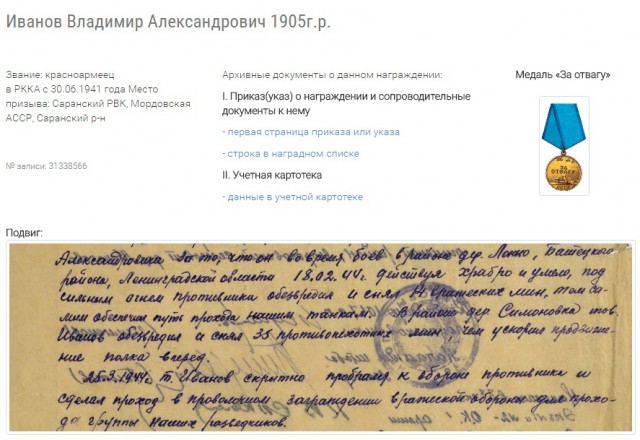 Иванов Владимир Александрович 1905г.р.
Звание: красноармеец
в РККА с 30.06.1941 года Место
призыва: Саранский РВК, Мордовская
АССР, Саранский р-н
№ записи: 31338566
Архивные документы о данном награждении:
I. Приказ(указ) о награждении и сопроводительные
документы к нему
- первая страница приказа или указа
- строка в наградном списке
II. Учетная картотека
- данные в учетной картотеке
Медаль «За отвагу»
ЗА
ОТВАГУ
Подвиг:
Александровича за то, что он во время боев в районе дер. Батецкого
района, Ленинградской области 18.02.44г. действуя храбро и умело, под
сильным огнем противника обезвредил и снял 14 вражеских мин, тем са-
мым обеспечил путь прохода нашим танкам. В районе дер. Симоновка тов.
Иванов обезвредил и снял 35 противопехотных мин чем ускорил продвиже-
ние полка вперед.
25.3.1944г. т. Иванов скрытно пробрался к обороне противника и
сделал проход в проволочном заграждении вражеской обороны для прохо-
да группы наших разведчиков.